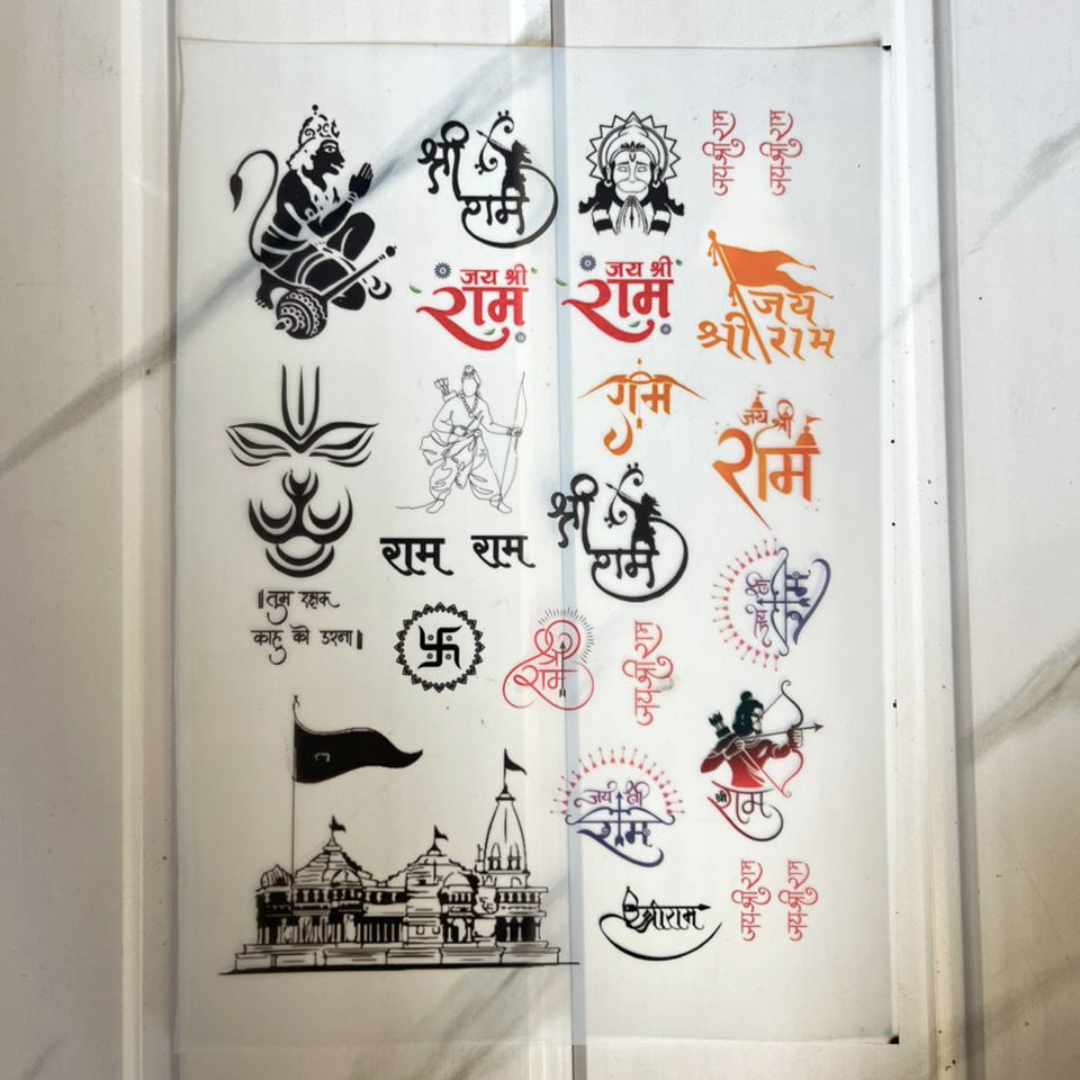 श्री
राम
जय श्री राम
जय श्री राम
जय श्री
राम
जय श्री
राम
जय
श्री राम
राम
जय श्री
राम
श्री
राम
राम राम
जय श्री
राम
॥तुम रक्षक
काहू को डरना॥
श्री
राम
जय श्री राम
श्री
राम
जय श्री
राम
श्रीराम
जय श्री राम
जय श्री राम